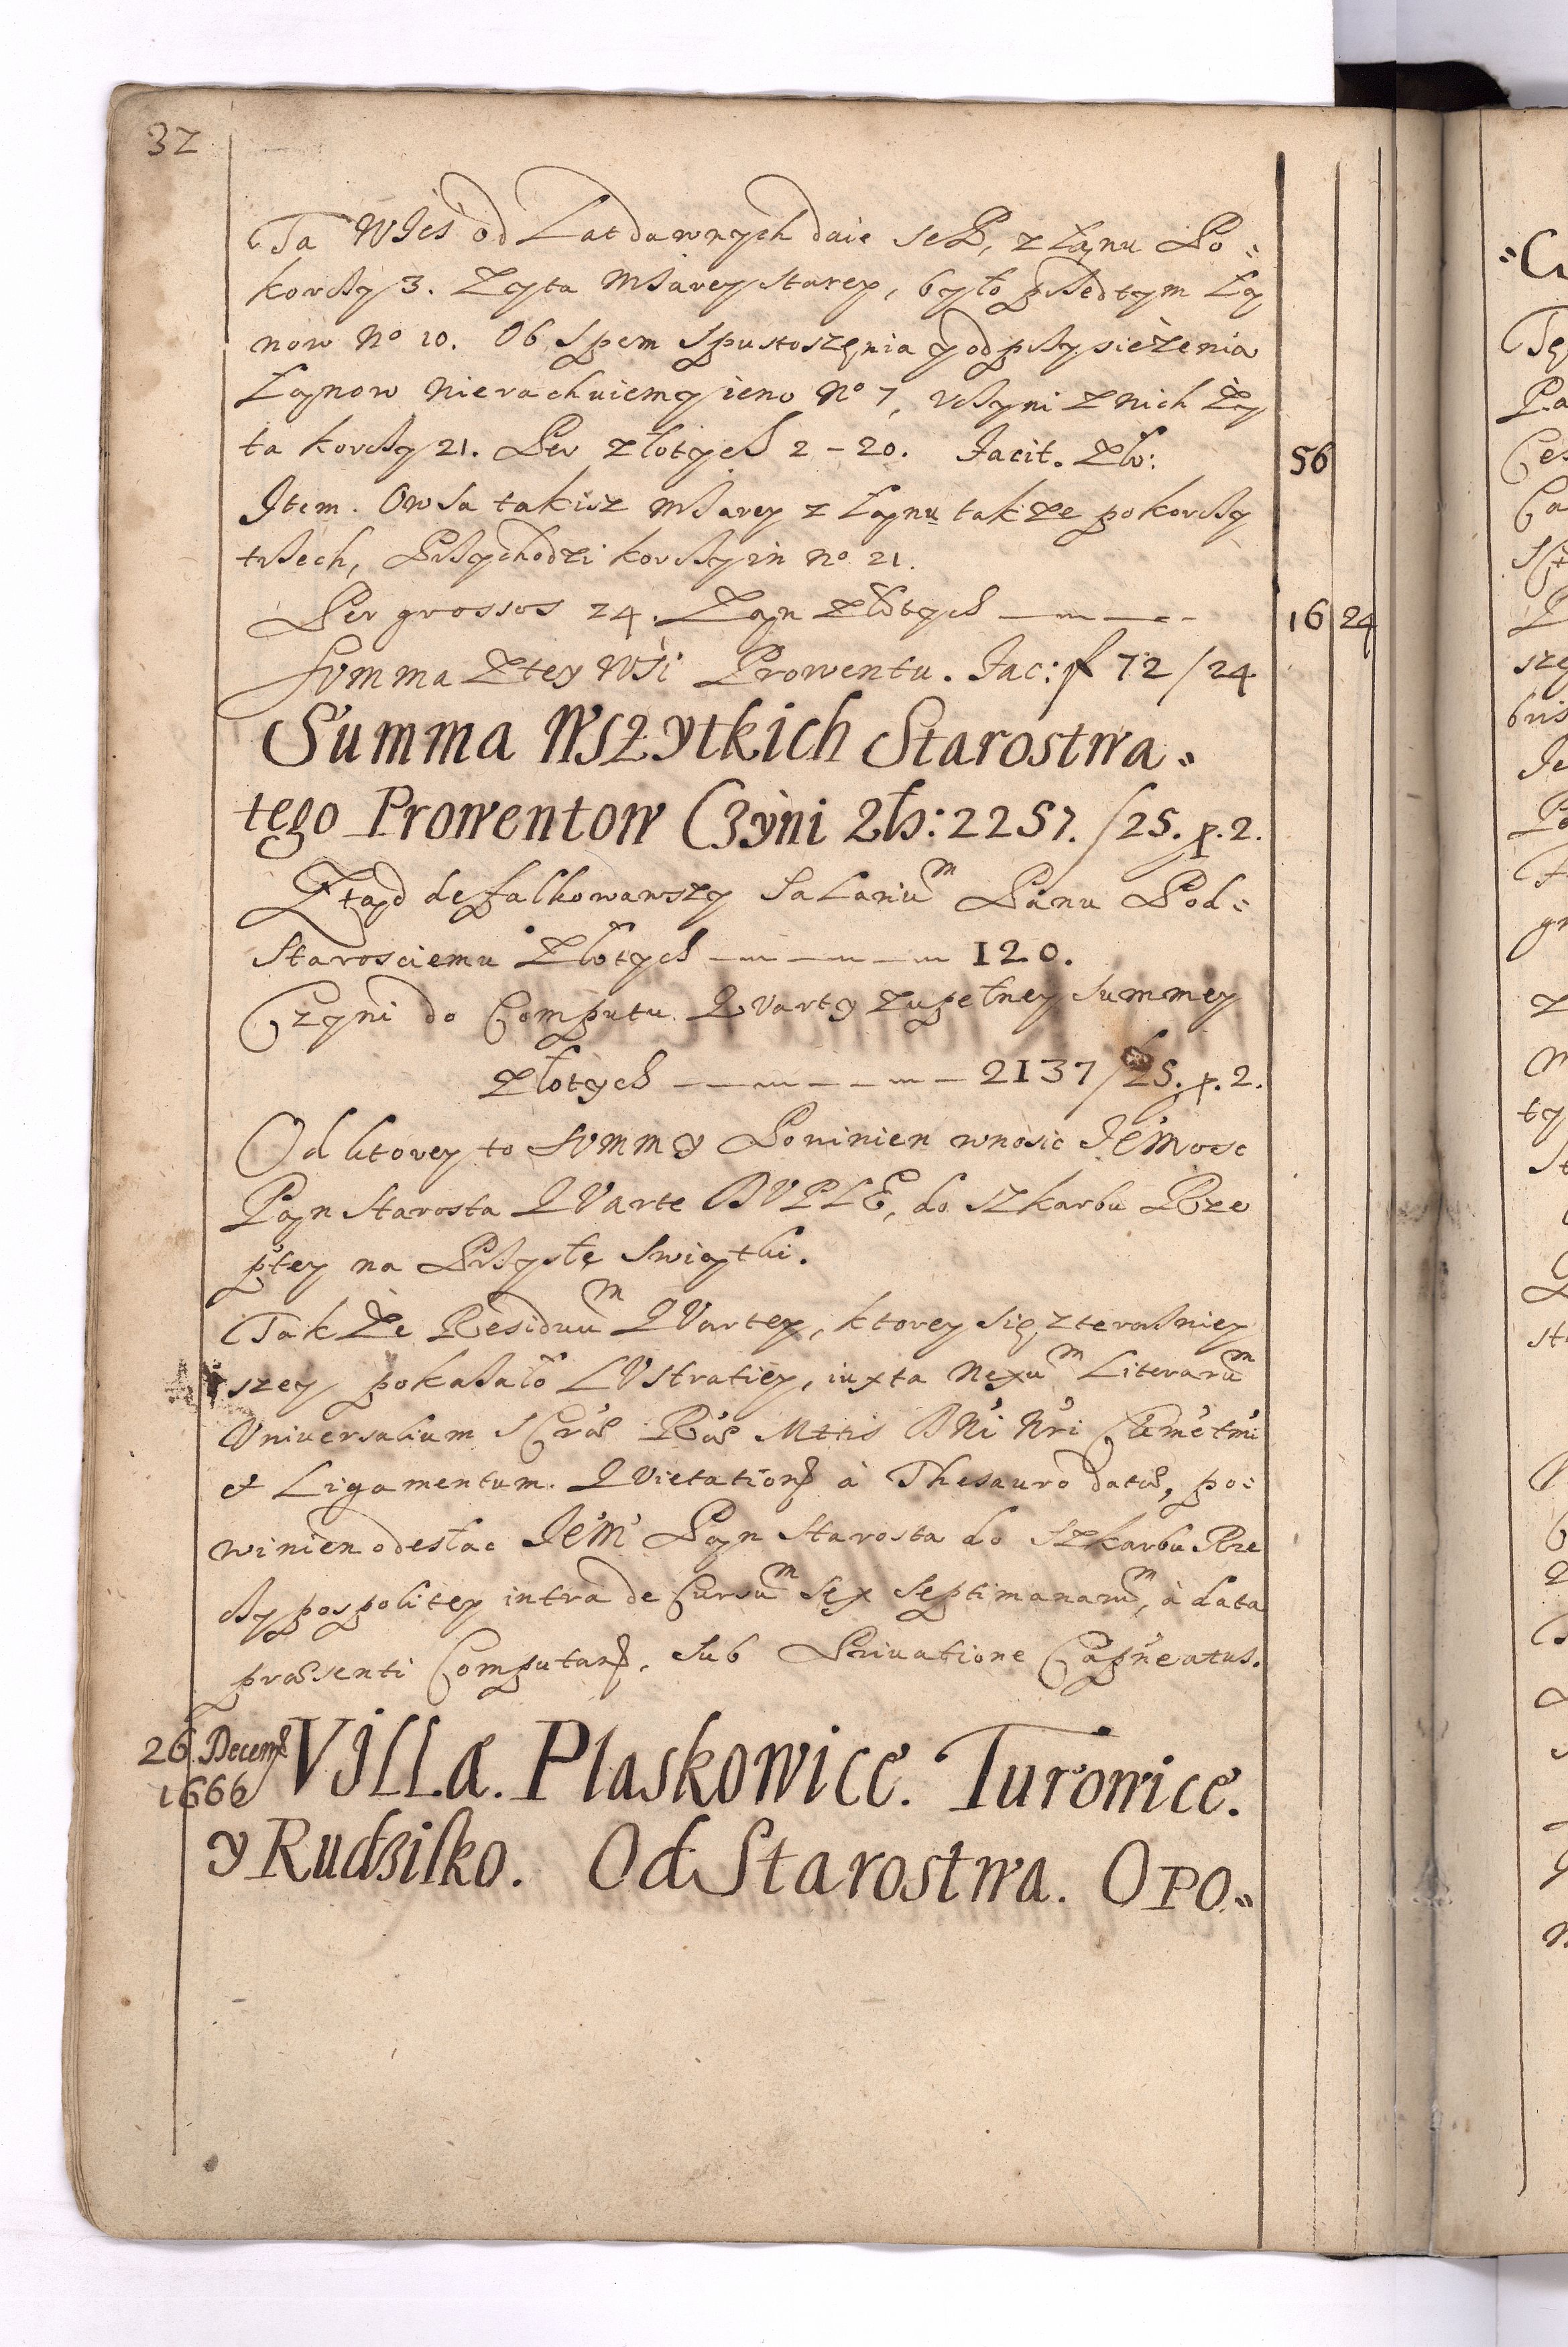 32
Ta Wieś od Lat dawnych daie Sep, z Łanu Po=
korcży 3. Zyta Miarey Starey, było pżedtym Ła
now No 10. Ob Spem Spustoszenia y odpżysieżenia
Łanow nierachuiemy ieno No 7, Vcżyni z nich ży
ta korcży 21. Per złotych 2-20. Facit. Zło: 56
Item. Owsa takisz Miarey z Łanu takze po korcży
tżech, Pżychodzi korcżyin No 21.
Per grossos 24. Zayn Złotych 16 24
Summa Ztey WSi Prowentu. Fac: f 72/24
Summa Wszytkich Starostwa=
tego Prowentow Czyni Zło: 2257./25. p. 2.
Ztąd defalkowawszy Salarium Panu Pod=
Starosciemu Złotych 120.
Czyni do Computu Qvarty zupełney Summey
Złotych 2137/25. p. 2.
Od ktorey to Summy Powinien wnosić Jeo Mość
Pan Starosta QVarte DVPLE, do Szkarbu Rze
ptey na Pżysłe Swiątki.
Tak Że Residuum QVartey, ktorey się z terażniey
szey pokażało LVstratiey, iuxta Nexum Literarum
Vniversalium SCræ Ræ Mttis DNi Nri Clemetmi
et Ligamentum. QVietation à Thesauro datæ, po=
winien odesłac JeoM Pan Starosta do Szkarbu Rze
cżypospolitey intra deCursum Sex Septimanarum, à data
præsenti Computan. Sub Privatione Capneatus.
26. Decem
1666
Villa. Plaskowice. Turowice.
y Rudzilko. Od Starostwa. Opo=